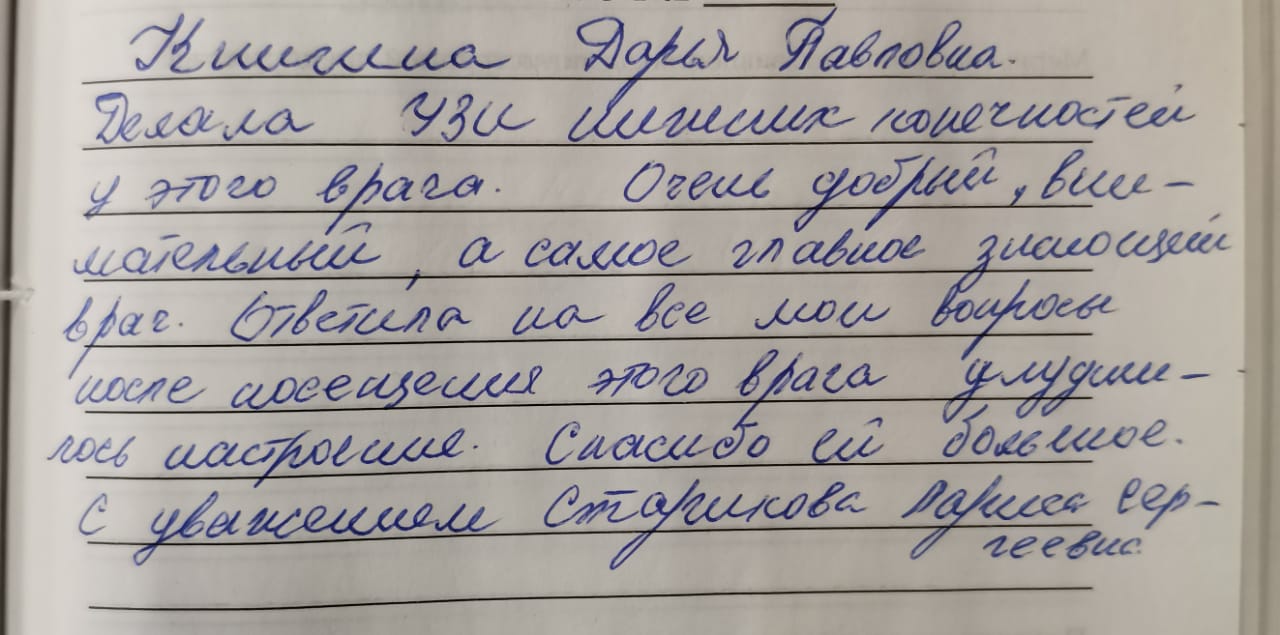 Книгина Дарья Павловна.
Делала УЗИ нижних конечностей
у этого врача. Очень добрый, вни-
мательный, а самое главное знающий
врач. Ответила на все мои вопросы
после посещения этого врача улудши-
лось настроение. Спасибо ей большое.
С уважением Старикова Лариса Сер-
геевна